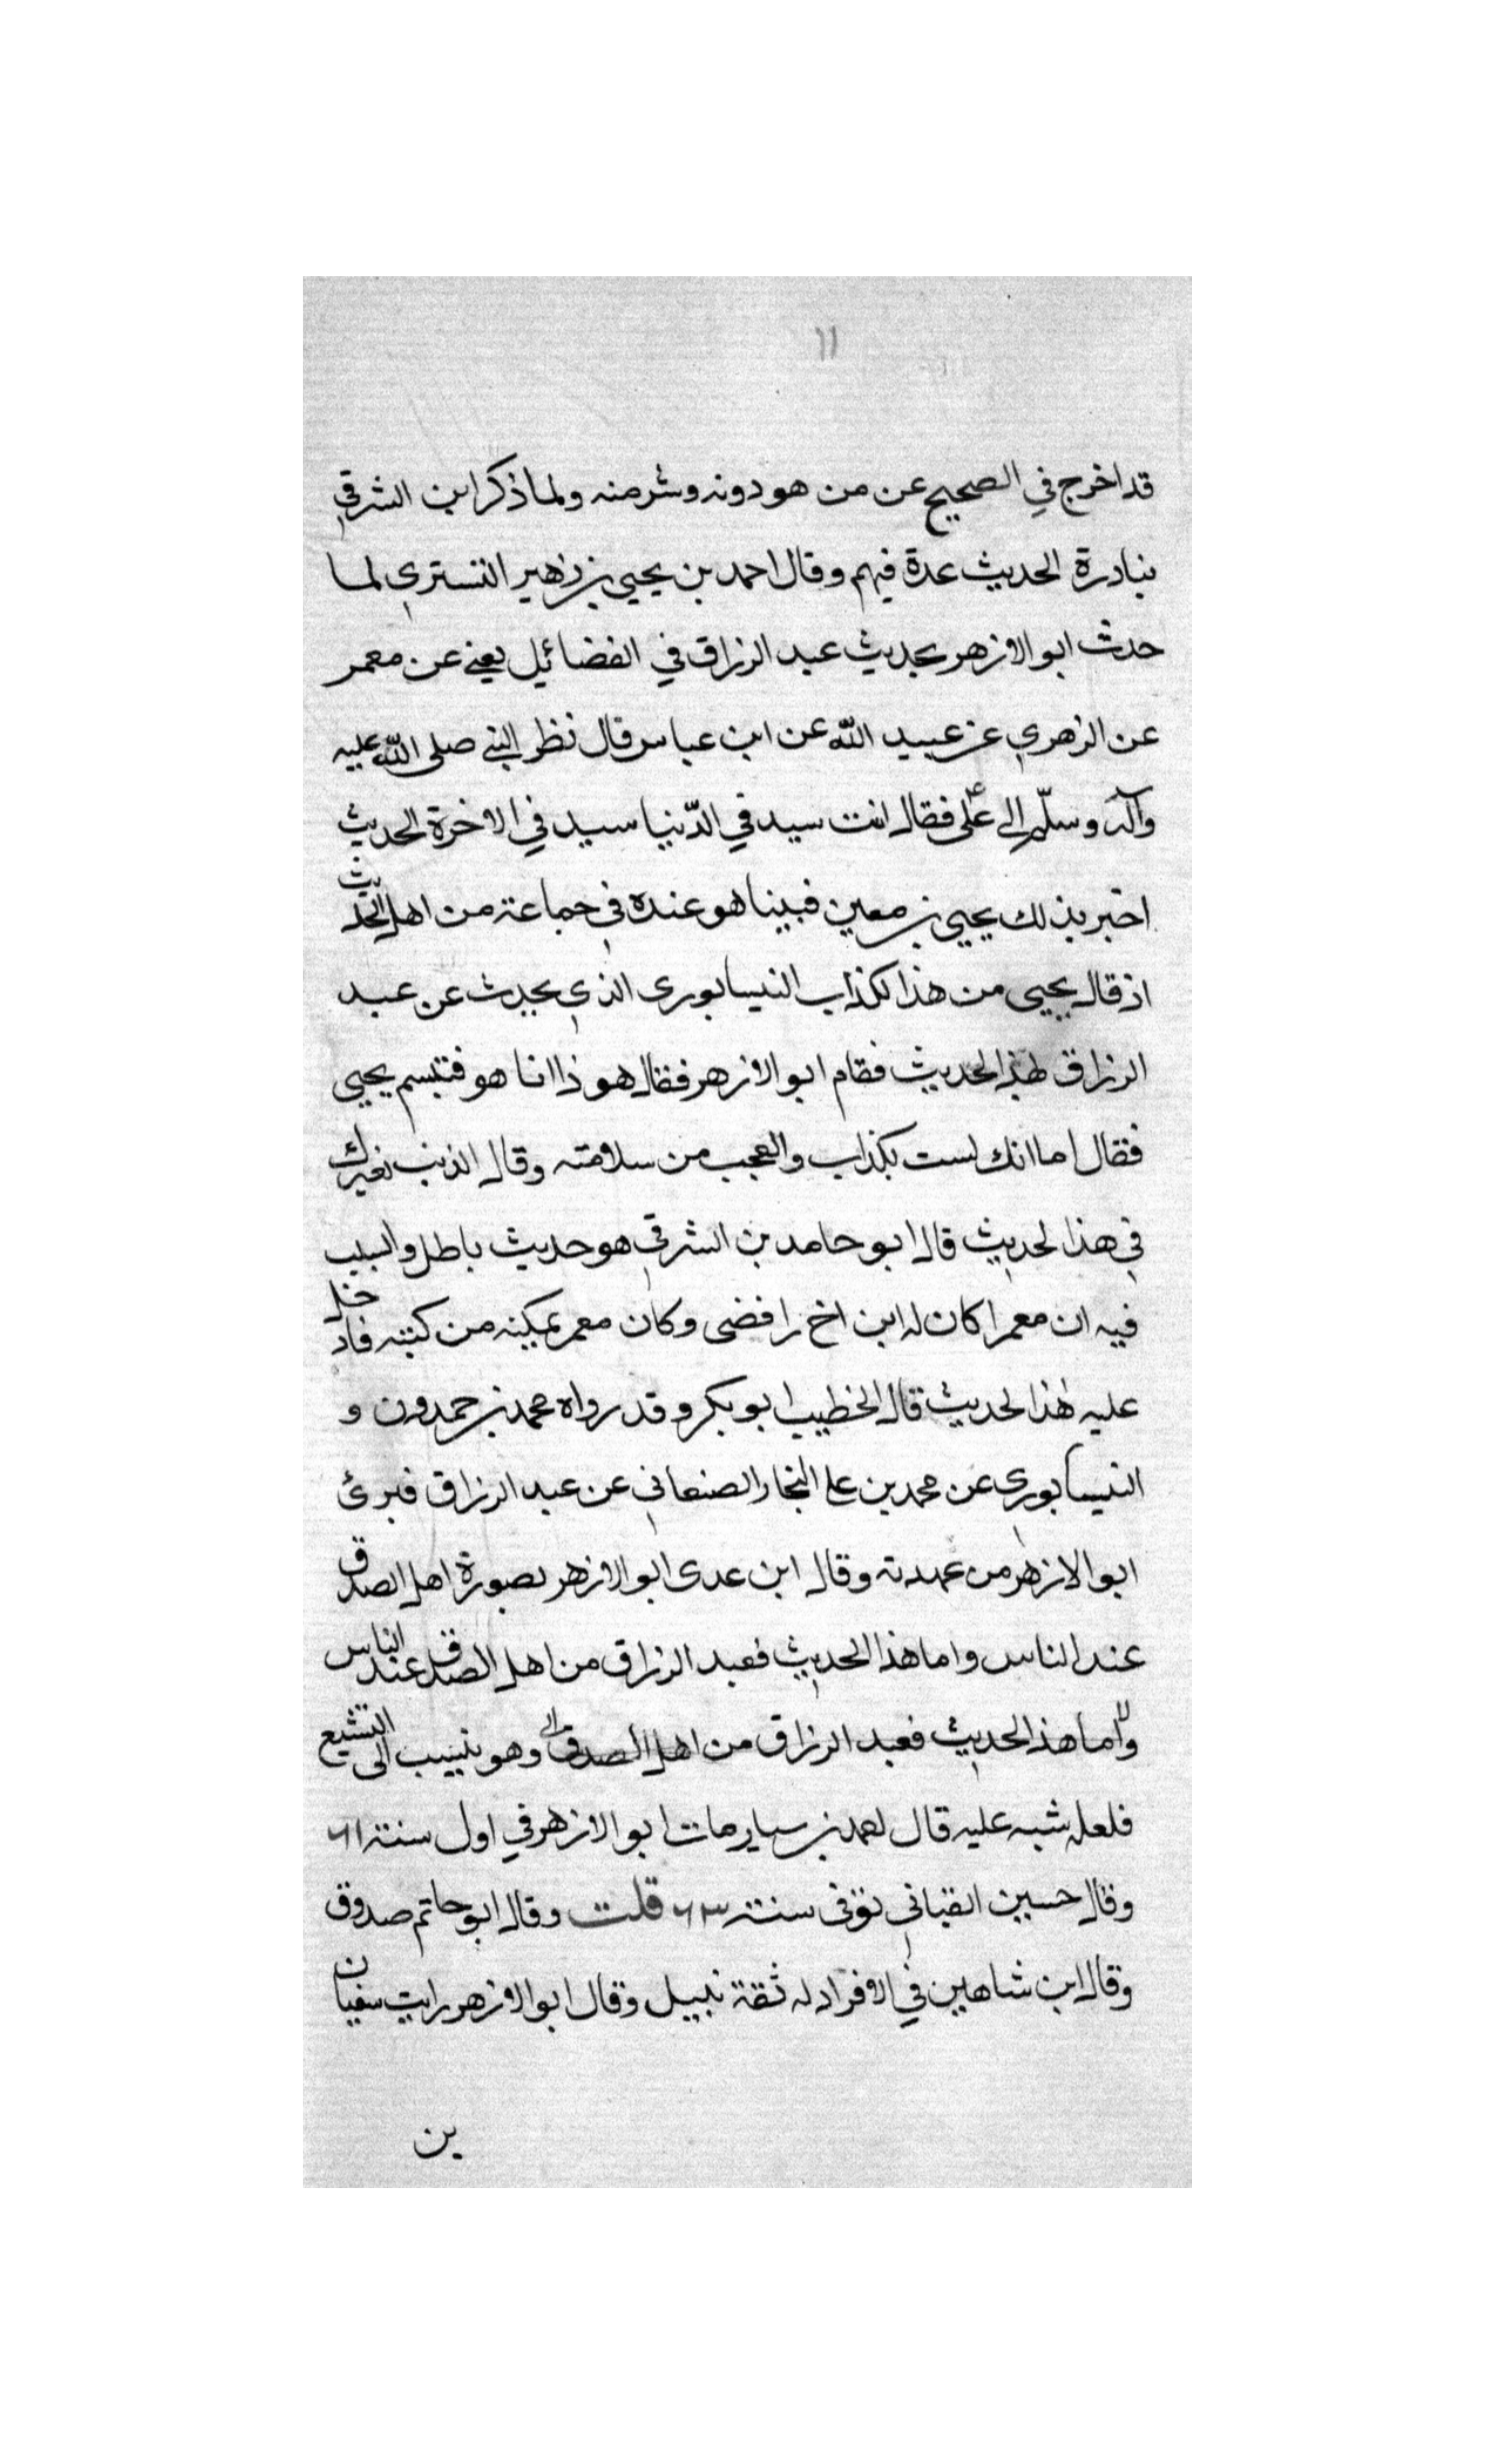 ١١
قد اخرج في الصحيح عن من هو دونه وشر منه ولما ذكر ابن الشرقي
بنادرة الحديث عدة فيهم وقال احمد بن يحيى بن زهير التستري لما
حدث ابو الازهر بحديث عبد الرزاق في الفضائيل يعني عن معمر
عن الزهري عن عبيد الله عن ابن عباس قال نظر النبي صلى الله عليه
وآله وسلّم الى علي فقال انت سيد في الدّنيا سيد في الاخرة الحديث
اخبر بذلك يحيى بن معين فبينا هو عنده في جماعة من اهل الحديث
اذ قال يحيى من هذا لكذاب النيسابورى الذي يحدث عن عبد
الرزاق لهذا الحديث فقام ابو الازهر فقال هو ذا انا هو فتبسم يحيى
فقال اما انك لست بكذاب والعجب من سلامته وقال الذنب لغيرك
في هذا لحديث قال ابو حامد بن الشرقي هو حديث باطل والسبب
فيه ان معمرا كان له ابن اخ رافضى وكان معمر يمكينه من كتبه فادخل
عليه هذا لحديث قال الخطيب ابو بكر وقد رواه محمد بن حمدون و
النيسابوري عن محمد بن على النجار الصنعاني عن عبد الرزاق فبرئ
ابو الازهر من عهدته وقال ابن عدى ابو الازهر بصورة اهل الصدق
عند الناس واما هذا الحديث فعبد الرزاق من اهل الصدق عند الناس
واما هذا الحديث فعبد الرزاق من اهل الصدق وهو ينسب الى التشيع
فلعله شبه عليه قال احمد بن سيار مات ابو الازهر في اول سنة ٦١
وقال حسين القباني توفى سنة ٦٣ قلت وقال ابو حاتم صدوق
وقال ابن شاهين في الافراد له ثقة نبيل وقال ابو الازهر رايت سفيان
بن